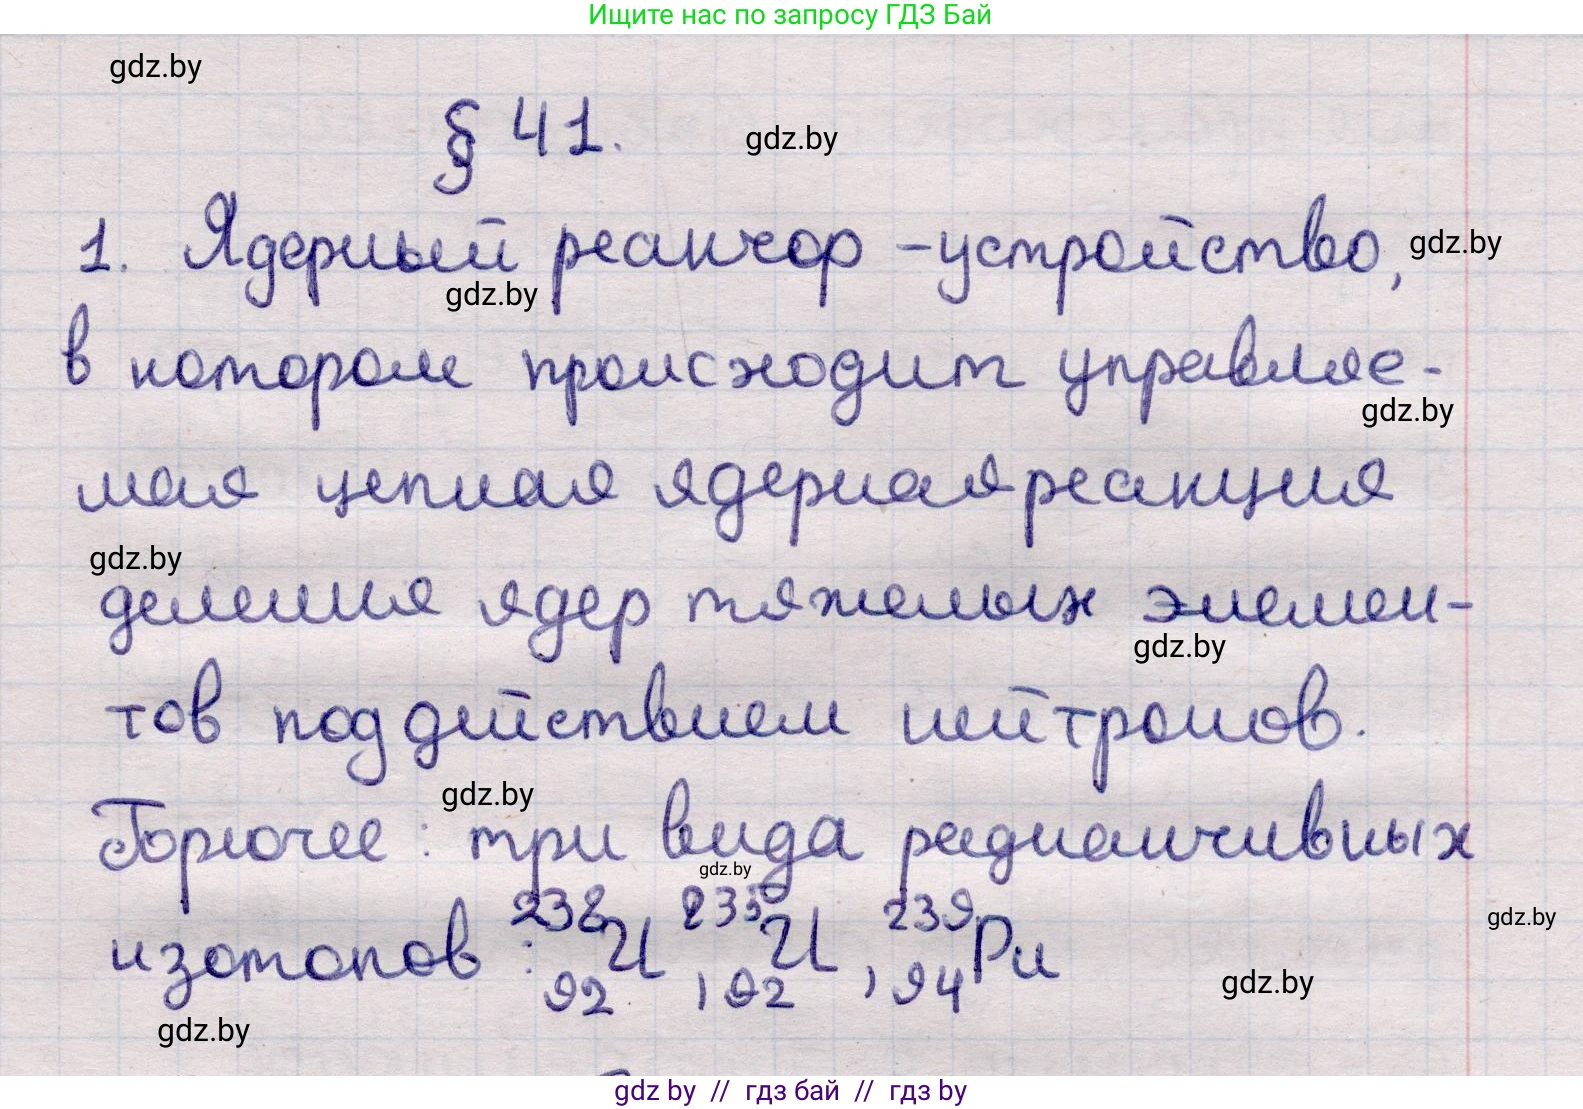 Ищите нас по запросу ГДЗ Бай
gdz.by
§ 41.
gdz.by
1. Ядерный реактор – устройство,
gdz.by
gdz.by
в котором происходит управляе-
gdz.by
мая цепная ядерная реакция
gdz.by
деления ядер тяжелых элемен-
gdz.by
тов под действием нейтронов.
gdz.by
Горючее: три вида радиактивных
gdz.by
gdz.by
изотопов: ²³⁸₉₂U, ²³⁵₉₂U, ²³⁹₉₄Pu
gdz.by
gdz.by
gdz by // гдз бай // гдз by